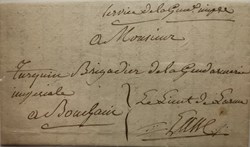 Service de la Gend. Impre
a Monsieur
Turquin Brigadier de la Gendarmerie
imperiale
a Bouchain
Le Lieut de